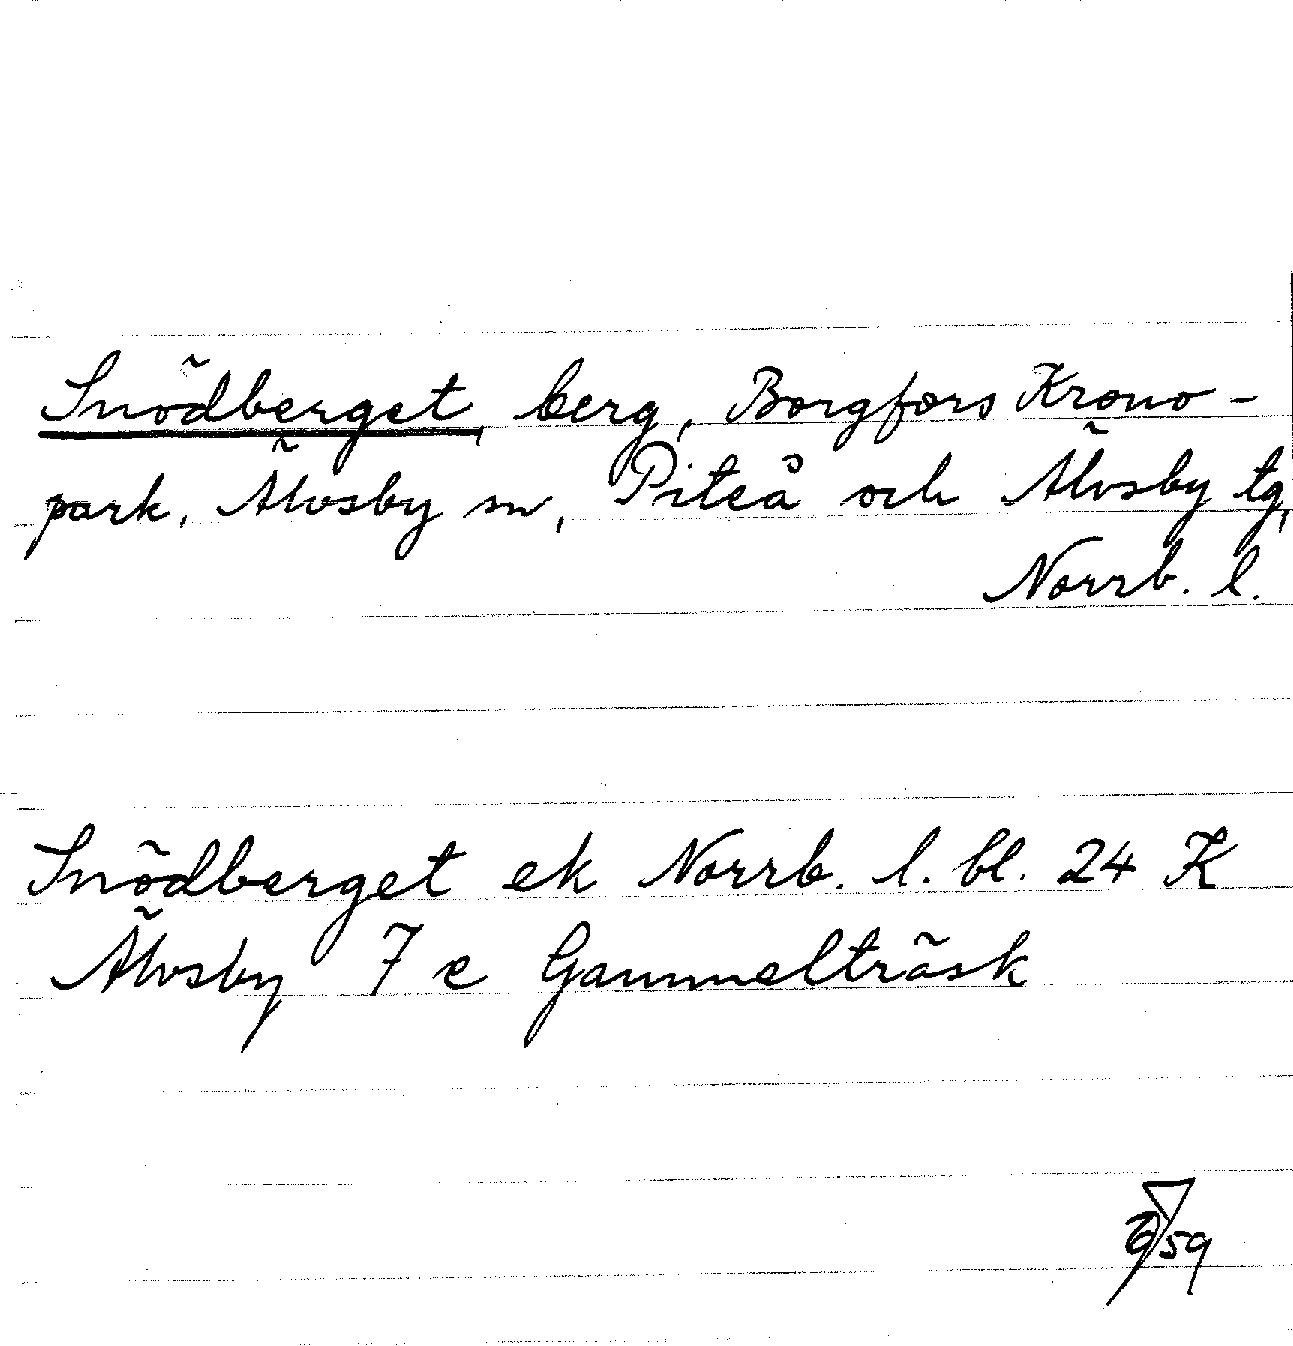 Snödberget, berg, Borgfors Krono-
park, Älvsby sn, Piteå och Älvsby tg,
Norrb. l.
Snödberget ek Norrb. l. bl. 24 K
Älvsby 7 e Gammelträsk
59